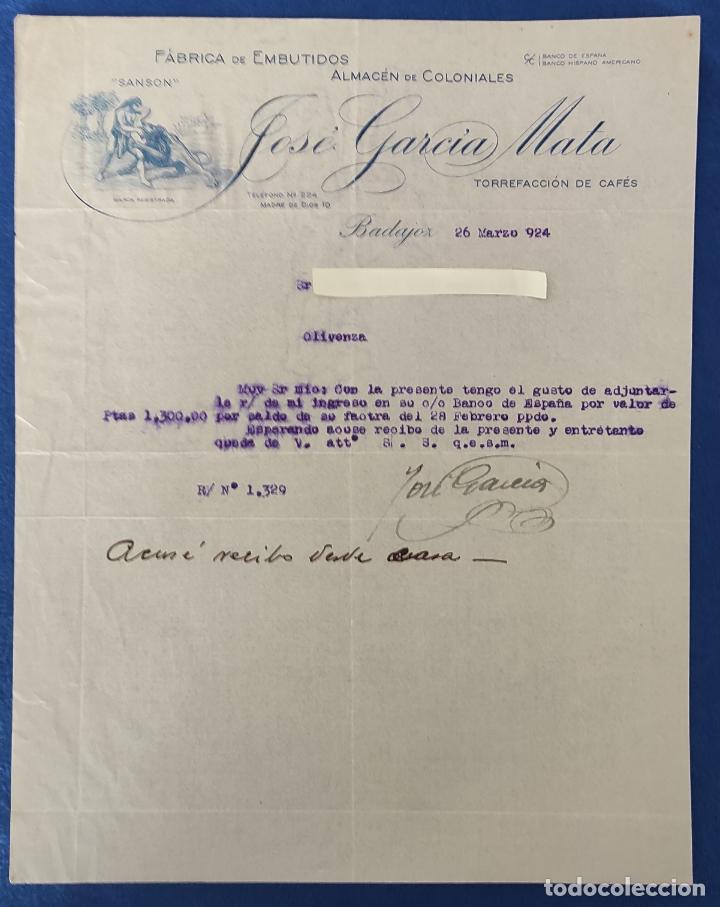 FÁBRICA DE EMBUTIDOS
C/C BANCO DE ESPAÑA
BANCO HISPANO AMERICANO
ALMACÉN DE COLONIALES
"SANSON"
José García Mata
TORREFACCIÓN DE CAFÉS
MARCA REGISTRADA
TELÉFONO Nº 224
MADRE DE DIOS 10
Badajoz 26 Marzo 924
Sr
Olivenza
Muy Sr mio: Con la presente tengo el gusto de adjuntar-
le r/ de mi ingreso en su c/c Banco de España por valor de
Ptas 1,300.00 por saldo de su factra del 28 Febrero ppdo.
Esperando acuse recibo de la presente y entretanto
queda de V. attº S. S. q.e.s.m.
José García
R/ Nº 1.329
Acusé recibo desde casa —
todocoleccion
todocoleccion.net